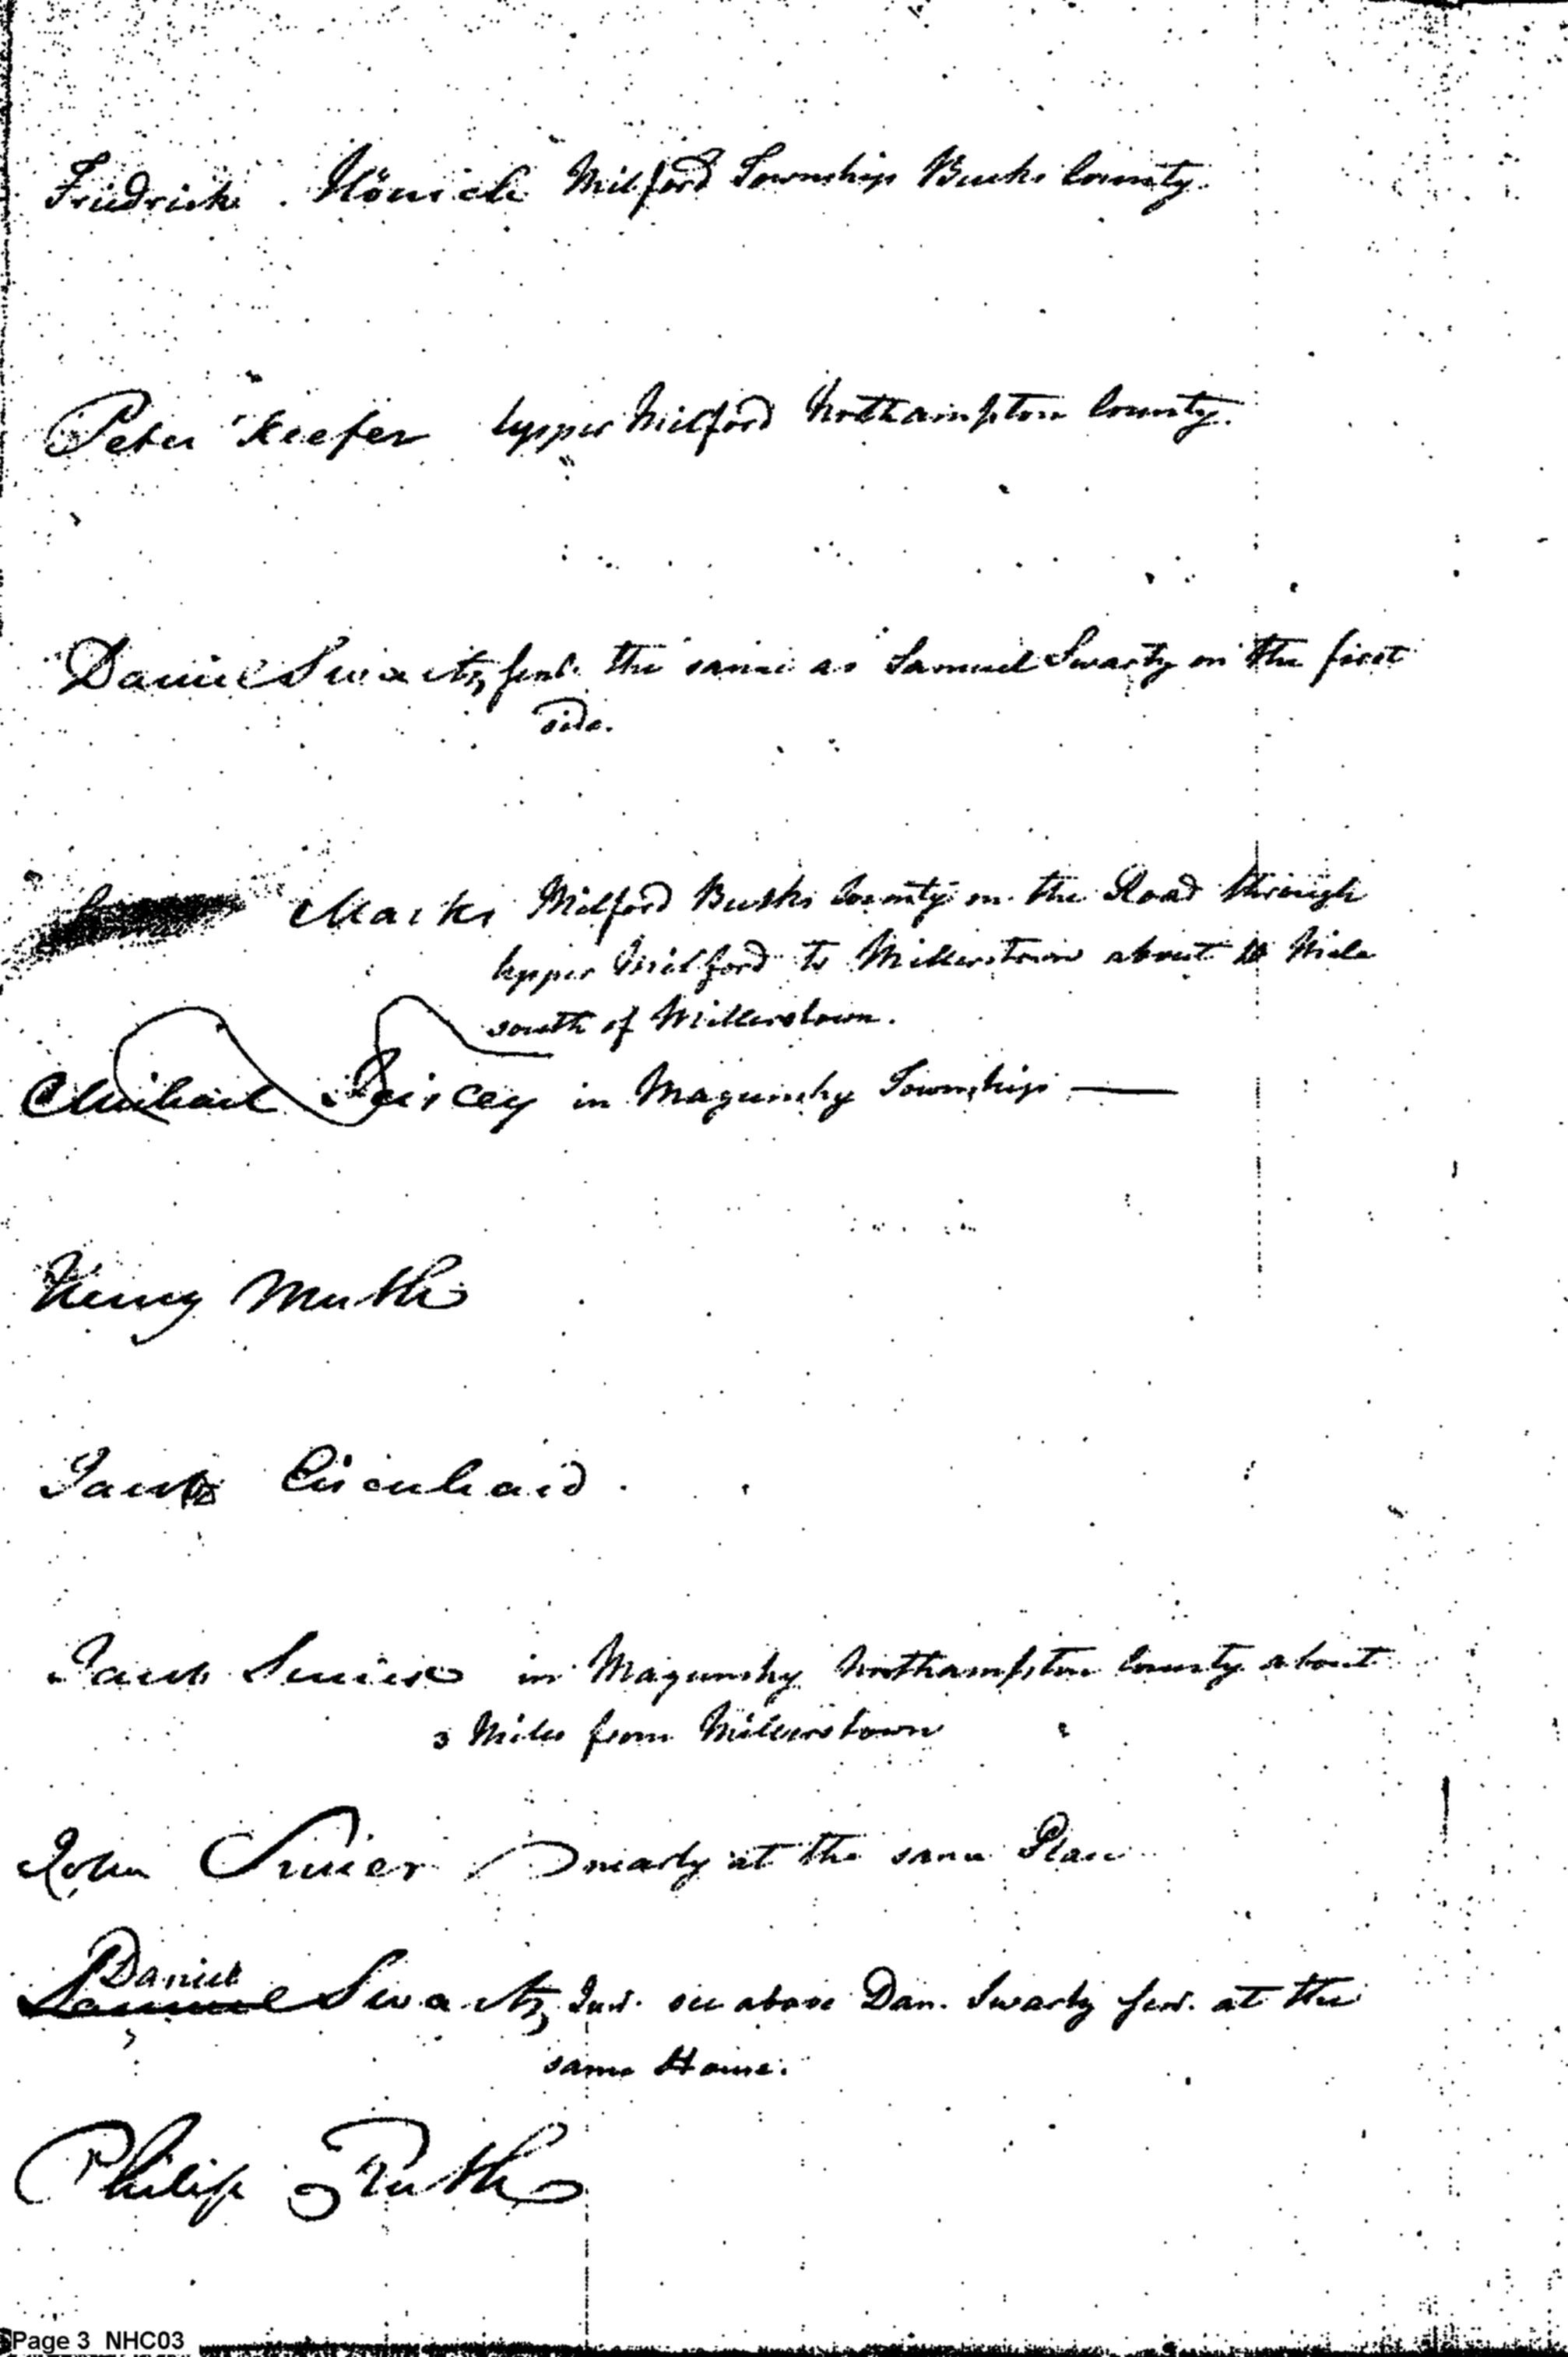 Friedrich Hönich Milford Township Bucks County.
Peter Keefer Upper Milford Northampton County.
Daniel Swartz, senr. the same as Samuel Swartz on the first
side.
Marks Milford Bucks County on the Road through
Upper Milford to Millerstown about Mile
south of Millerstown.
Michael in Magunshy Township —
Henry Muth
Jacob Eisenhard.
Jacob in Magunshy Northampton County about
3 Miles from Millerstown
John nearly at the same Place
Daniel
Samuel Swartz, Junr. see above Dan. Swartz senr. at the
same House.
Philip Ruth
Page 3 NHC03